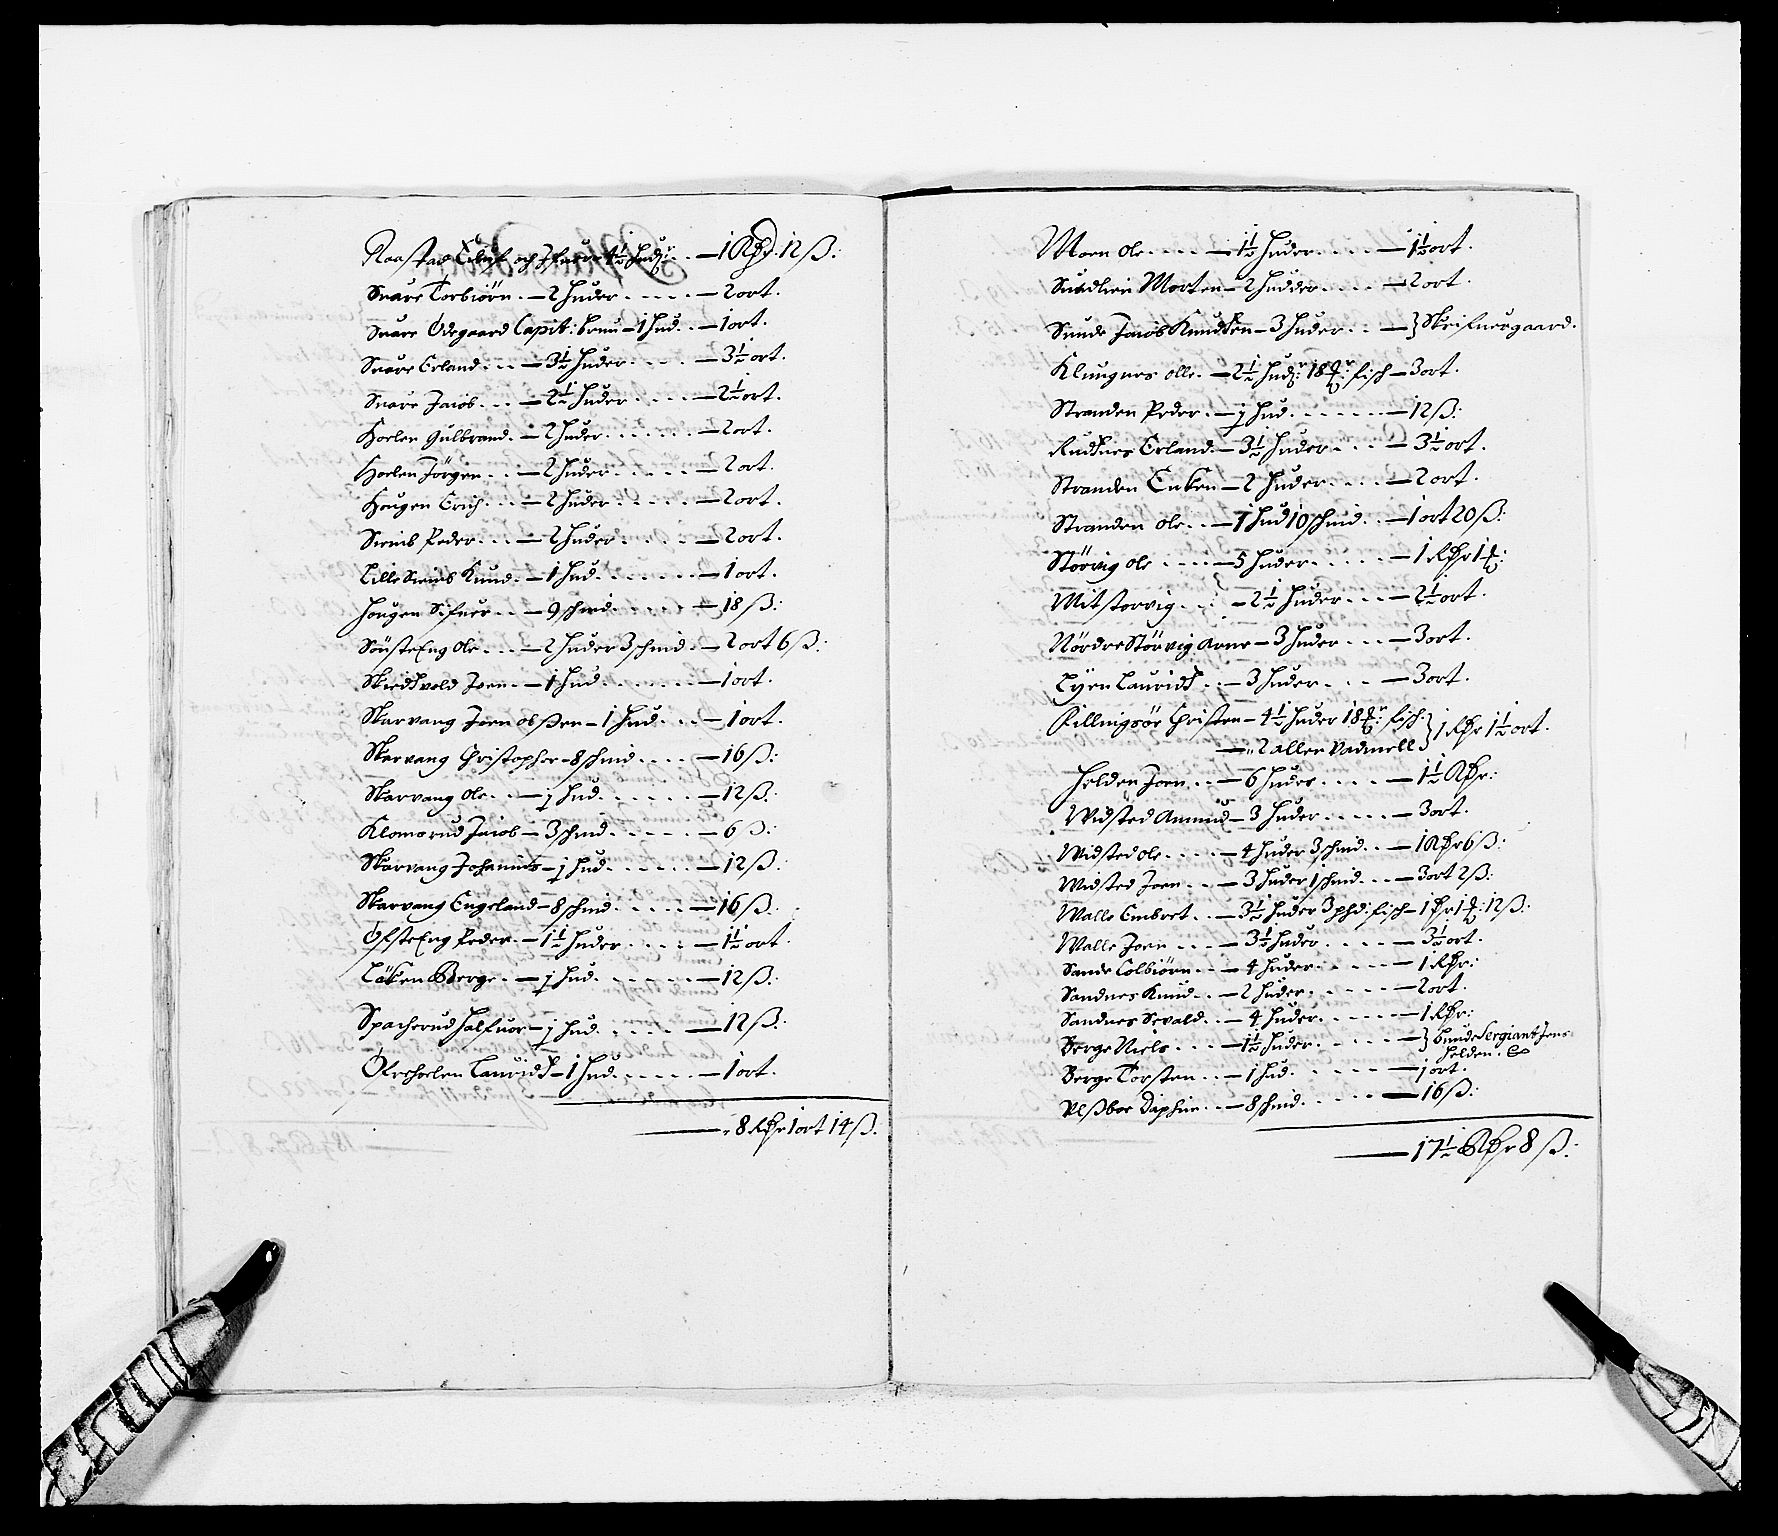 Raastad Eluf och Ifuer 4½ hud: — 1 Rdr 12 ß:
Snare Torbiörn — 2 huder — 2 ort.
Snare Ödegaard Capit: — 1 hud — 1 ort.
Snare Erland — 3½ huder — 3½ ort.
Snare Jacob — 2½ huder — 2½ ort.
Hoelen Gulbrand — 2 huder — 2 ort.
Hoelen Jörgen — 2 huder — 2 ort.
Hougen Erich — 2 huder — 2 ort.
Sreml Peder — 2 huder — 2 ort.
Lille Knud — 1 hud — 1 ort.
Hougen Sifuer — 9 schind — 18 ß:
SönsteEng Ole — 2 huder 3 schind — 2 ort 6 ß:
Skiedtvold Joen — 1 hud — 1 ort.
Skarvang Joen olßen — 1 hud — 1 ort.
Skarvang Christopher — 8 schind — 16 ß:
Skarvang Ole — j hud — 12 ß:
Klomorud Jacob — 3 schind — 6 ß:
Skarvang Johannes — j hud — 12 ß:
Skarvang Engeland — 8 schind — 16 ß:
ÖfsteEng Peder — 1½ huder — 1½ ort.
Löken Berge — j hud — 12 ß:
Spacherud Halfuor — j hud — 12 ß:
Ofrehoelen Lauridtz — 1 hud — 1 ort.
— 8 Rdr 1 ort 14 ß.
Moen Ole — 1½ huder — 1½ ort.
Sundlien Morten — 2 hudder — 2 ort.
Sunde Jacob Knudsen — 3 huder — } Skrifuergaard.
Klungnes Olle — 2½ hud: 18 fisch — 3 ort.
Stranden Peder — j hud — 12 ß:
Rudsnes Erland — 3½ huder — 3½ ort.
Stranden Encken — 2 huder — 2 ort.
Stranden Ole — 1 hud 10 schind — 1 ort 20 ß:
Störvig Ole — 5 huder — 1 Rdr 1
Mitstorvig — 2½ huder — 2½ ort.
Nördre Störvig Arne — 3 huder — 3 ort.
Lyen Lauridtz — 3 huder — 3 ort.
Killingsör Christen — 4½ huder 18 fisch } 1 Rdr 1½ ort.
— 2 allen Vadmell
Helden Joen — 6 huder — 1½ Rdr:
Widsted Anmund — 3 huder — 3 ort.
Widsted Ole — 4 huder 3 schind — 1 Rdr 6 ß:
Widsted Joen — 3 huder 1 schind — 3 ort 2 ß:
Walle Embret — 3½ huder 3 phd: fisch — 1 Rdr 1 12 ß:
Walle Joen — 3½ huder — 3½ ort.
Sande Colbiörn — 4 huder — 1 Rdr:
Sandnes Knud — 2 huder — 2 ort.
Sandnes Sevald — 4 huder — 1 Rdr:
Berge Niels — 1½ huder — } Sergiant Jens
Helden.
Berge Torsten — 1 hud — 1 ort.
Daphin — 8 schind — 16 ß:
— 17½ Rdr 8 ß: